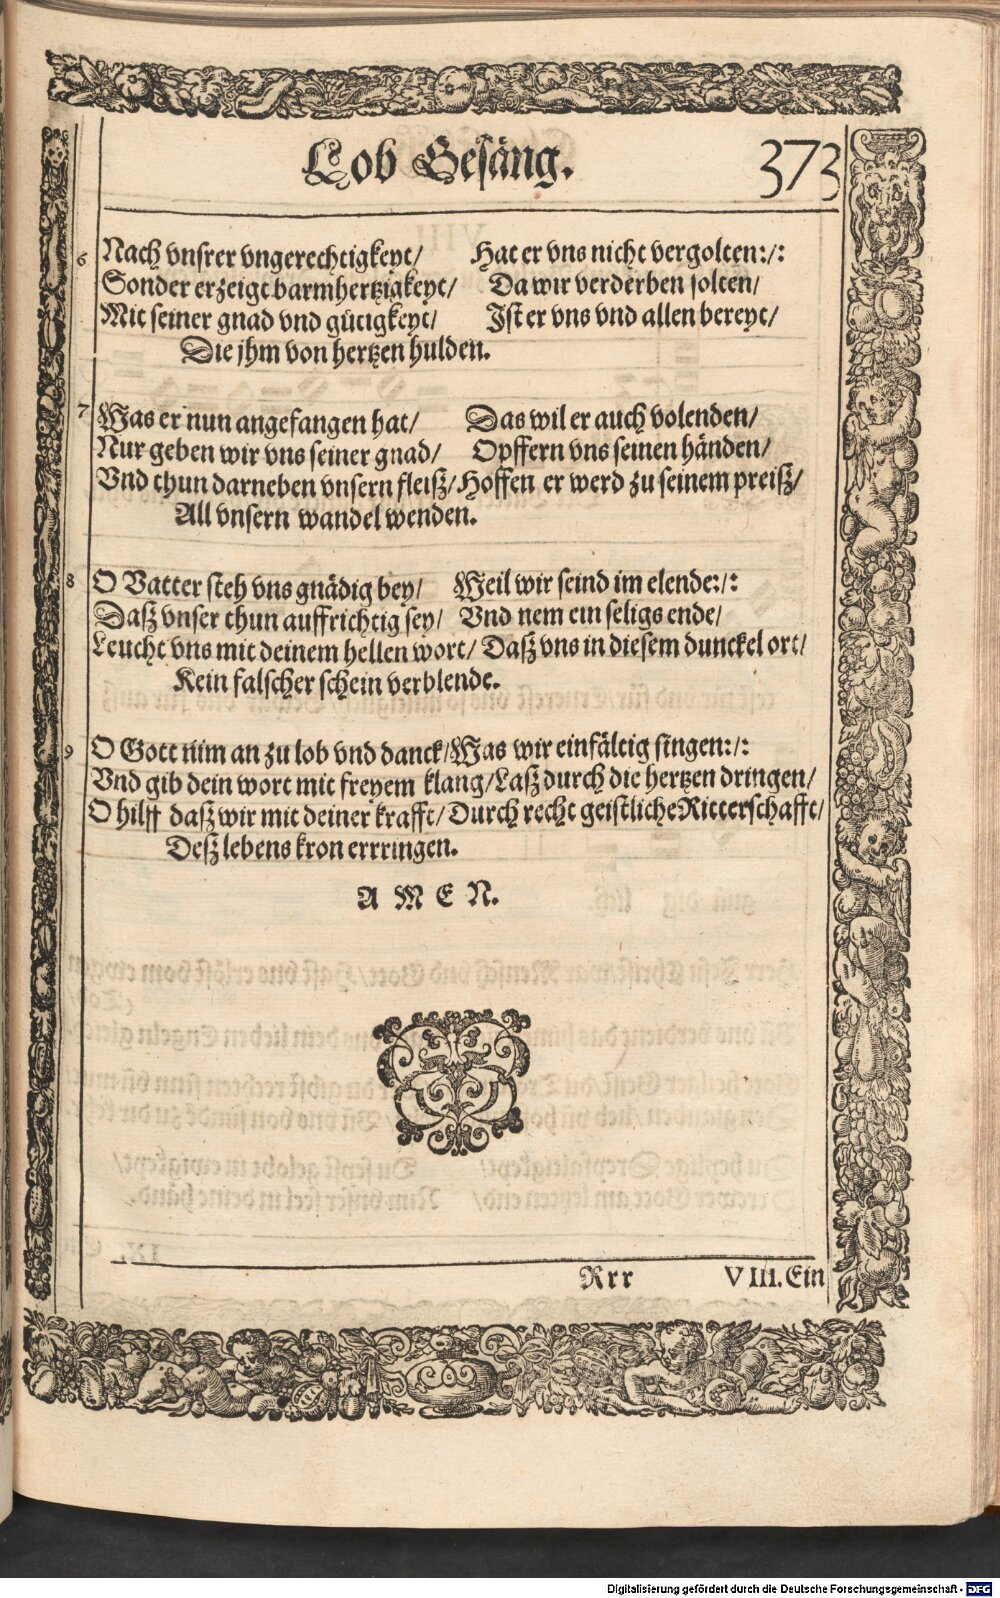 Lob Gesäng. 373
6 Nach vnsrer vngerechtigkeyt/ Hat er vns nicht vergolten:/:
Sonder erzeigt barmhertzigkeyt/ Da wir verderben solten/
Mit seiner gnad vnd gütigkeyt/ Ist er vns vnd allen bereyt/
Die jhm von hertzen hulden.
7 Was er nun angefangen hat/ Das wil er auch volenden/
Nur geben wir vns seiner gnad/ Opffern vns seinen händen/
Vnd thun darneben vnsern fleiß/ Hoffen er werd zu seinem preiß/
All vnsern wandel wenden.
8 O Vatter steh vns gnädig bey/ Weil wir seind im elende:/:
Daß vnser thun auffrichtig sey/ Vnd nem ein seligs ende/
Leucht vns mit deinem hellen wort/ Daß vns in diesem dunckel ort/
Kein falscher schein verblende.
9 O Gott nim an zu lob vnd danck/ Was wir einfältig singen:/:
Vnd gib dein wort mit freyem klang/ Laß durch die hertzen dringen/
O hilff daß wir mit deiner krafft/ Durch recht geistliche Ritterschafft/
Deß lebens kron errringen.
A M E N.
Rrr VIII. Ein
Digitalisierung gefördert durch die Deutsche Forschungsgemeinschaft - DFG